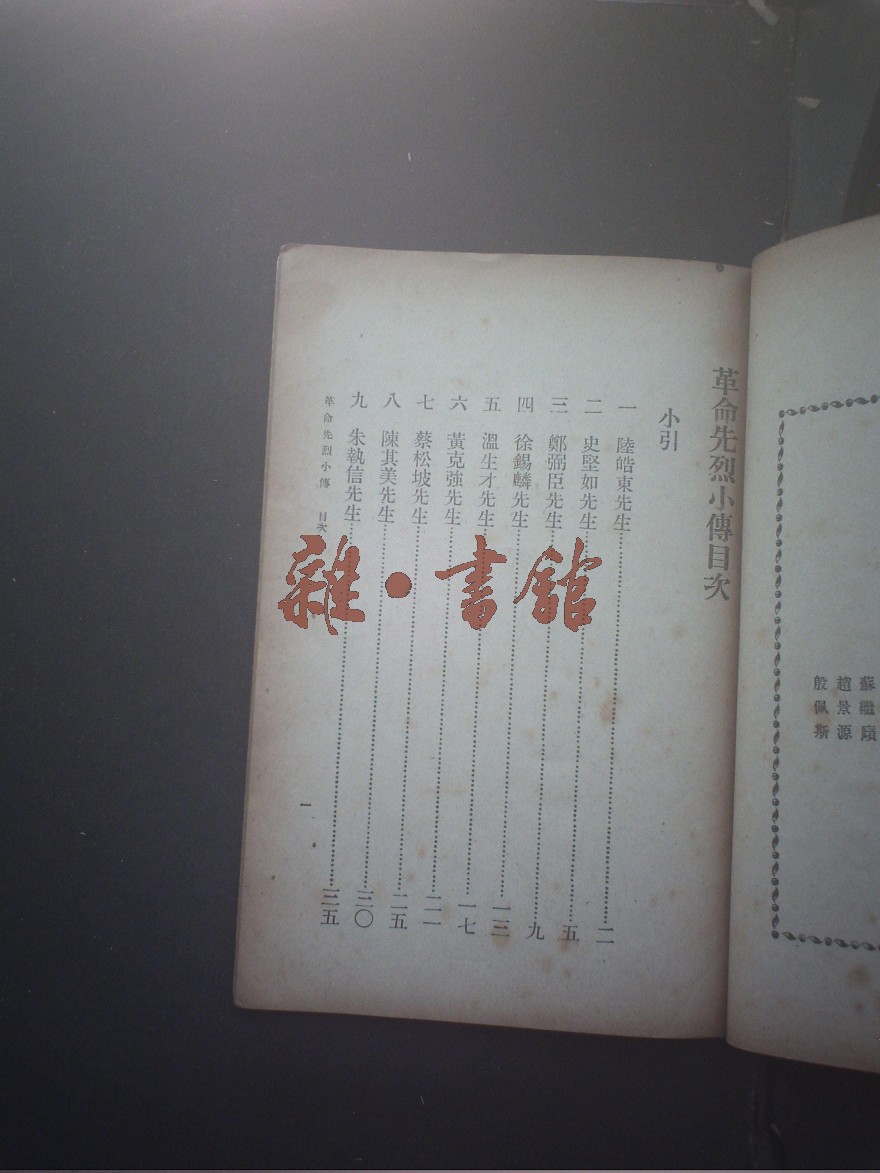 蘇繼廎
趙景源
殷佩斯
革命先烈小傳目次
小引
一 陸皓東先生……二
二 史堅如先生……五
三 鄭弼臣先生……九
四 徐錫麟先生……一三
五 溫生才先生……一七
六 黃克強先生……二一
七 蔡松坡先生……二五
八 陳其美先生……三〇
九 朱執信先生……三五
革命先烈小傳 目次
一
雜·書館